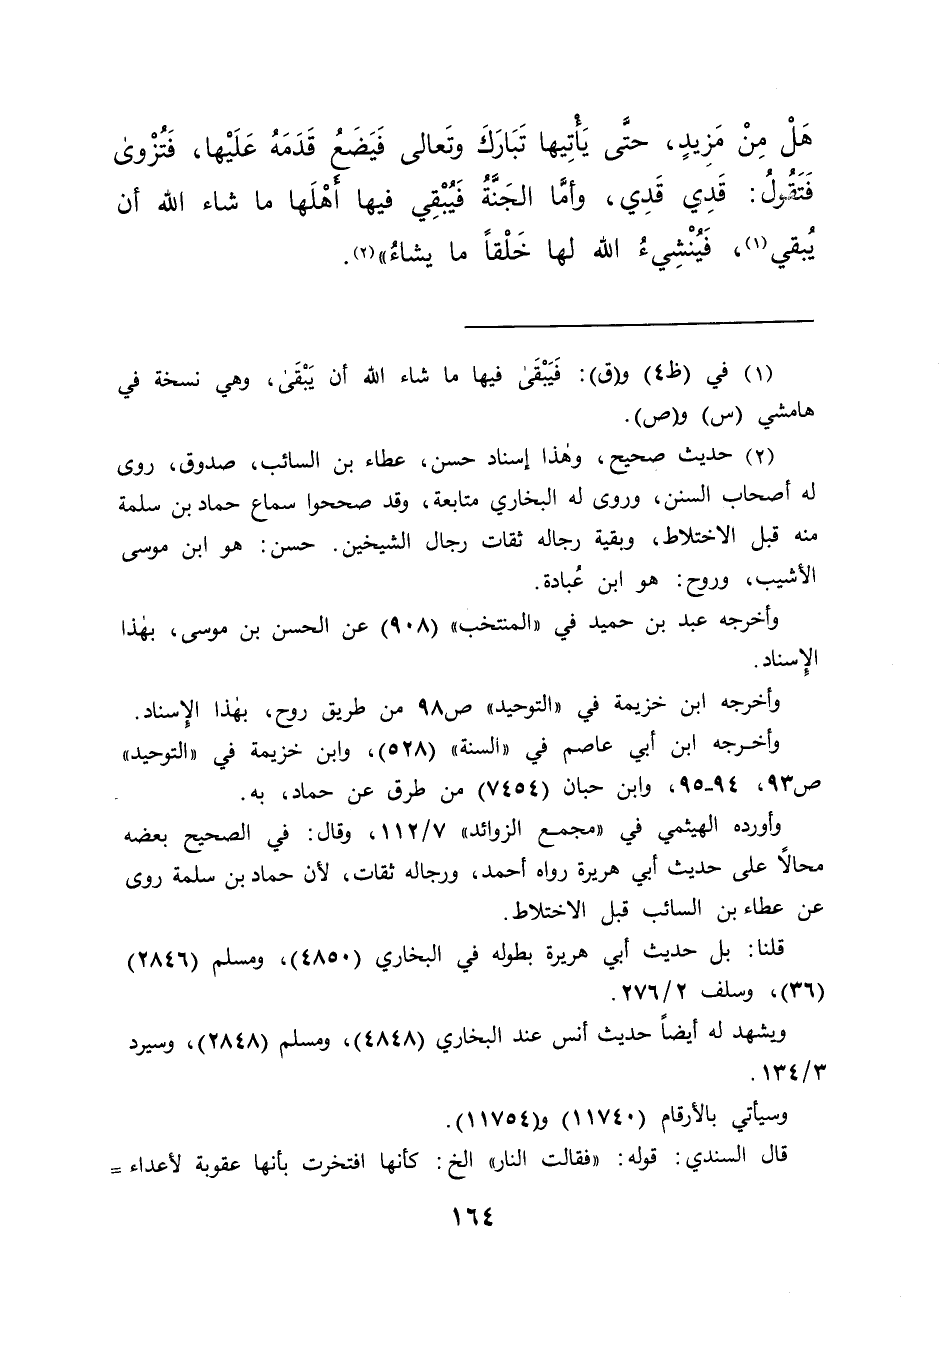 هَلْ مِنْ مَزِيدٍ، حتَّى يَأْتِيها تَبَارَكَ وتَعالى فَيَضَعُ قَدَمَهُ عَلَيْها، فَتُزْوىٰ
فَتَقُولُ: قَدِي قَدِي، وأمَّا الجَنَّةُ فَيُبْقِي فيها أَهْلَها ما شاء الله أن
يُبقي(١)، فَيُنْشِيءُ الله لها خَلْقاً ما يشاءُ»(٢).
(١) في (ظ٤) و(ق): فَيَبْقَىٰ فيها ما شاء الله أن يَبْقَىٰ، وهي نسخة في
هامشي (س) و(ص).
(٢) حديث صحيح، وهٰذا إسناد حسن، عطاء بن السائب، صدوق، روى
له أصحاب السنن، وروى له البخاري متابعة، وقد صححوا سماع حماد بن سلمة
منه قبل الاختلاط، وبقية رجاله ثقات رجال الشيخين. حسن: هو ابن موسى
الأشيب، وروح: هو ابن عُبادة.
وأخرجه عبد بن حميد في «المنتخب» (٩٠٨) عن الحسن بن موسى، بهٰذا
الإسناد.
وأخرجه ابن خزيمة في «التوحيد» ص٩٨ من طريق روح، بهٰذا الإسناد.
وأخرجه ابن أبي عاصم في «السنة» (٥٢٨)، وابن خزيمة في «التوحيد»
ص٩٣، ٩٤-٩٥، وابن حبان (٧٤٥٤) من طرق عن حماد، به.
وأورده الهيثمي في «مجمع الزوائد» ١١٢/٧، وقال: في الصحيح بعضه
محالاً على حديث أبي هريرة رواه أحمد، ورجاله ثقات، لأن حماد بن سلمة روى
عن عطاء بن السائب قبل الاختلاط.
قلنا: بل حديث أبي هريرة بطوله في البخاري (٤٨٥٠)، ومسلم (٢٨٤٦)
(٣٦)، وسلف ٢٧٦/٢.
ويشهد له أيضاً حديث أنس عند البخاري (٤٨٤٨)، ومسلم (٢٨٤٨)، وسيرد
١٣٤/٣.
وسيأتي بالأرقام (١١٧٤٠) و(١١٧٥٤).
قال السندي: قوله: «فقالت النار» الخ: كأنها افتخرت بأنها عقوبة لأعداء =
١٦٤